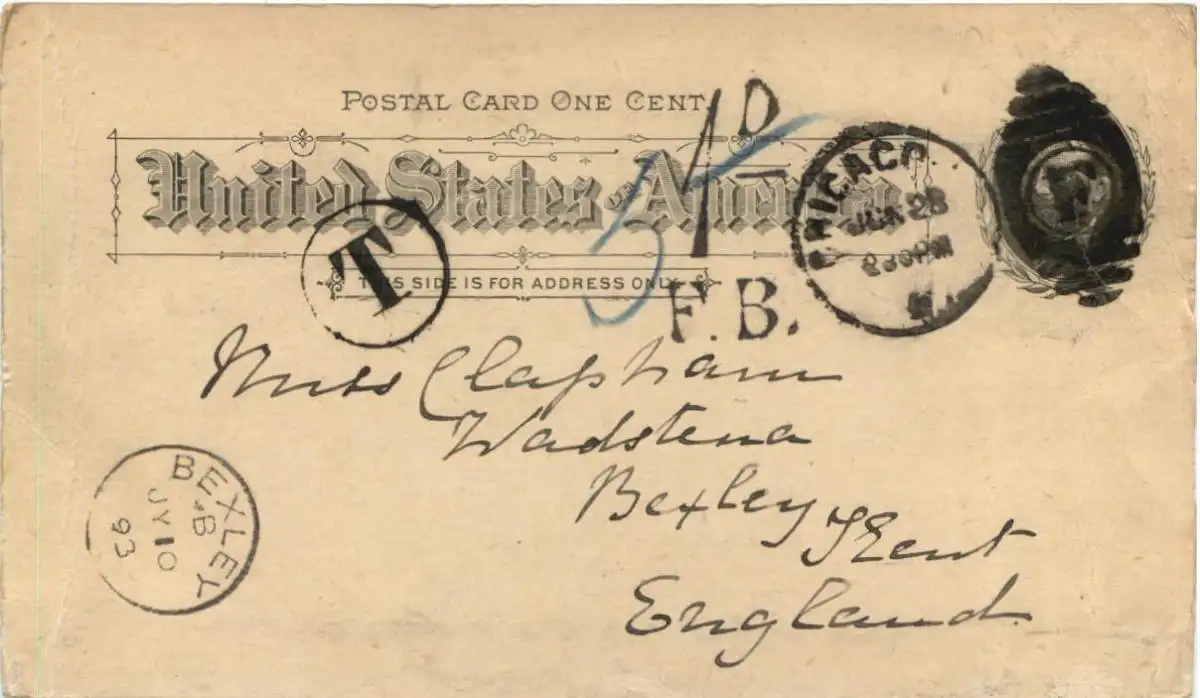 POSTAL CARD ONE CENT.
United States of America
THIS SIDE IS FOR ADDRESS ONLY.
T
1D
5
F.B.
CHICAGO.
JUN 28
230PM
Miss Clapham
Wadstena
Bexley Kent
England
BEXLEY
B
JY 10
93